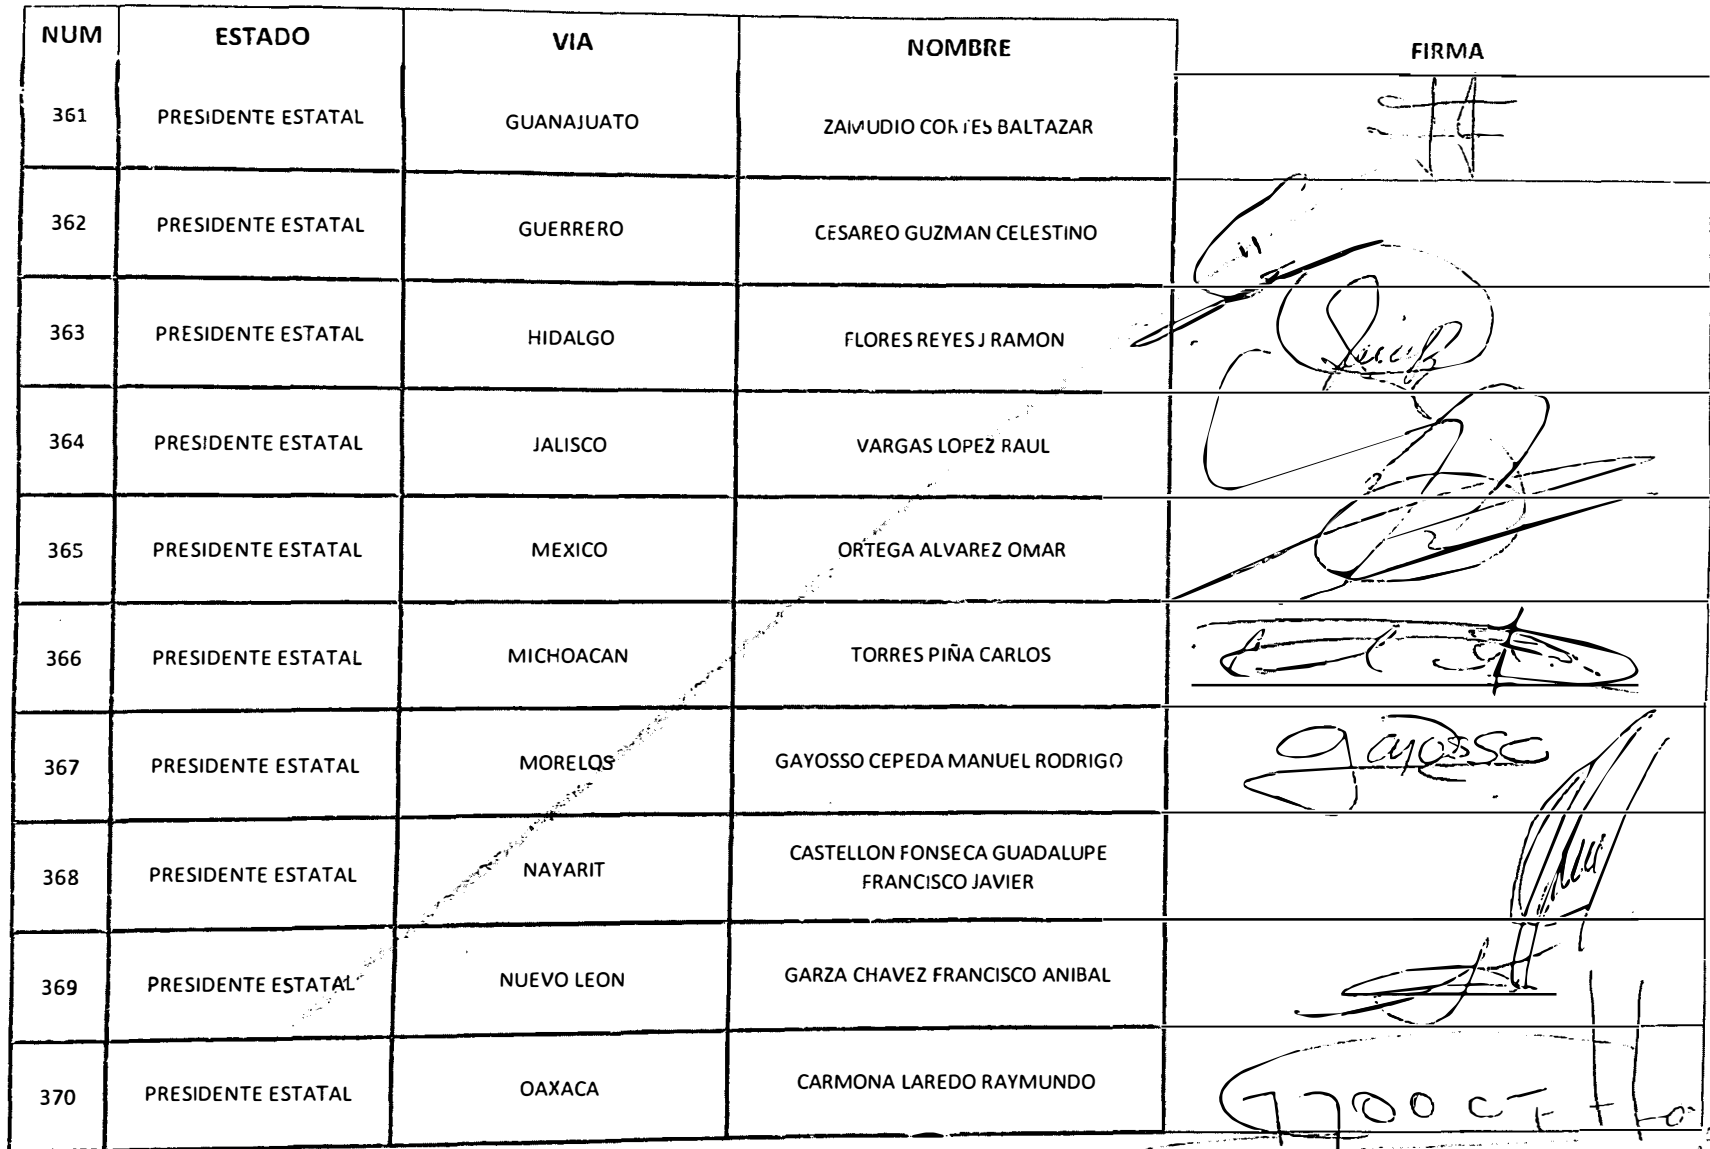 NUM ESTADO VIA NOMBRE FIRMA
361 PRESIDENTE ESTATAL GUANAJUATO ZAMUDIO CORTES BALTAZAR
362 PRESIDENTE ESTATAL GUERRERO CESAREO GUZMAN CELESTINO
363 PRESIDENTE ESTATAL HIDALGO FLORES REYES J RAMON
364 PRESIDENTE ESTATAL JALISCO VARGAS LOPEZ RAUL
365 PRESIDENTE ESTATAL MEXICO ORTEGA ALVAREZ OMAR
366 PRESIDENTE ESTATAL MICHOACAN TORRES PIÑA CARLOS
367 PRESIDENTE ESTATAL MORELOS GAYOSSO CEPEDA MANUEL RODRIGO gayosso
368 PRESIDENTE ESTATAL NAYARIT CASTELLON FONSECA GUADALUPE
FRANCISCO JAVIER
369 PRESIDENTE ESTATAL NUEVO LEON GARZA CHAVEZ FRANCISCO ANIBAL
370 PRESIDENTE ESTATAL OAXACA CARMONA LAREDO RAYMUNDO